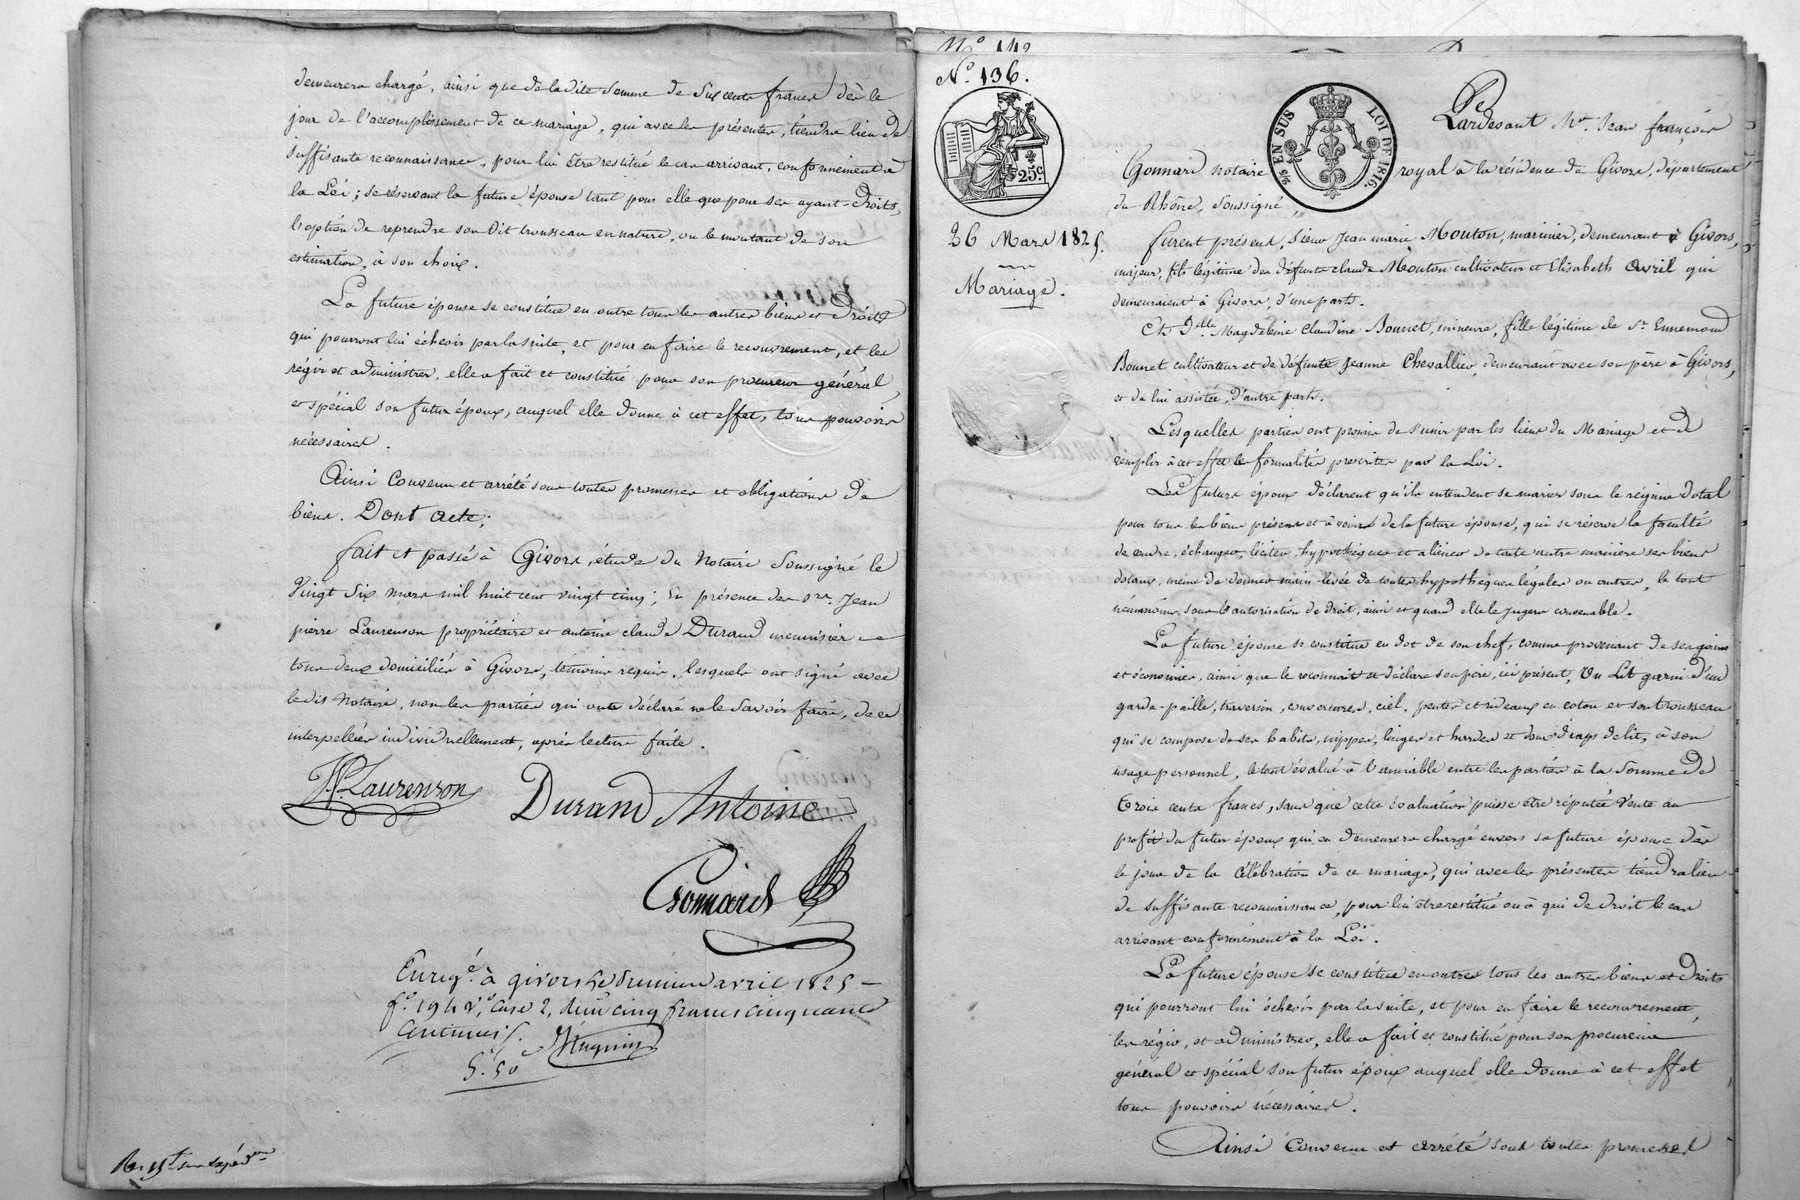 demeurera chargé, ainsi que de la dite somme de Six cents francs dès le
jour de l'accomplissement de ce mariage, qui avec les présentes, tiendra lieu de
suffisante reconnaissance, pour lui être restitué le cas arrivant, conformément à
la Loi; se réservant la future épouse tant pour elle que pour ses ayant-droits,
l'option de reprendre son dit trousseau en nature, ou le montant de son
estimation, à son choix.
La future épouse se constitue en outre tous les autres biens et droits
qui pourront lui échoir par la suite, et pour en faire le recouvrement, et les
régir et administrer, elle a fait et constitué pour son procureur général,
et spécial son futur époux, auquel elle donne à cet effet, tous pouvoirs
nécessaires.
Ainsi Convenu et arrêté sous toutes promesses et obligations de
biens. Dont acte;
fait et passé à Givors, étude du Notaire Soussigné le
Vingt Six mars mil huit cent vingt cinq; En présence des srs. Jean
pierre Laurenson propriétaire et antoine claude Durand menuisier
tous deux domiciliés à Givors, témoins requis, lesquels ont signé avec
ledit Notaire, non les parties qui ont déclaré ne le Savoir faire, de ce
interpellées individuellement, après lecture faite.
JP. Laurenson
Durand Antoine
Gonnard
Enregé. à givors le premier avril 1825
fo. 194 Vo. Case 2, Reçu cinq francs cinquante
Centimes.
5f.50c
Huguin
No. 136.
25c
25 EN SUS
LOI DE 1816.
26 Mars 1825.
Mariage.
Pardevant Me. Jean françois
Gonnard notaire royal à la résidence de Givors, département
du Rhône, soussigné,
furent présens, Sieur Jean marie Mouton, marinier, demeurant à Givors,
majeur, fils légitime des défunts claude Mouton cultivateur et Elisabeth Avril qui
demeuraient à Givors, d'une part.
Et Delle Magdeleine Claudine Bonnet, mineure, fille légitime de Sr. Ennemond
Bonnet cultivateur et de défunte Jeanne Chevallier, demeurant avec son père à Givors,
et de lui assistée, d'autre part.
Lesquelles parties ont promis de s'unir par les liens du Mariage et de
remplir à cet effet les formalités prescrites par la Loi.
Les futurs époux déclarent qu'ils entendent se marier sous le régime dotal
pour tous les biens présens et à venir de la future épouse, qui se réserve la faculté
de vendre, échanger, liciter, hypothéquer et aliéner de toute autre manière ses biens
dotaux, même de donner main-levée de toutes hypothèques légales ou autres, le tout
néanmoins sous l'autorisation de droit, ainsi et quand elle le jugera convenable.
La future épouse se constitue en dot de son chef, comme provenant de ses gains
et économies, ainsi que le reconnait et déclare son père, ici présent, Un Lit garni d'un
garde-paille, traversin, couvertures, ciel, pentes et rideaux en coton et son trousseau
qui se compose de ses habits, nippes, linges et hardes et deux draps de lit, à son
usage personnel, le tout évalué à l'amiable entre les parties à la Somme de
Trois cents francs, sans que cette évaluation puisse être réputée Vente au
profit du futur époux qui en demeurera chargé envers sa future épouse dès
le jour de la Célébration de ce mariage, qui avec les présentes tiendra lieu
de suffisante reconnaissance, pour lui être restitué ou à qui de droit le cas
arrivant conformément à la Loi.
La future épouse se constitue en outre tous les autres biens et droits
qui pourront lui échoir par la suite, et pour en faire le recouvrement,
les régir, et administrer, elle a fait et constitué pour son procureur
général et spécial son futur époux auquel elle donne à cet effet
tous pouvoirs nécessaires.
Ainsi Convenu et arrêté sous toutes promesses